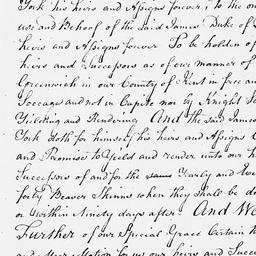 York his heirs and Assigns forever, to the on
use and Behoof of the said James Duke of
heirs and Assigns forever To be holden of
heirs and Successors as of our manor of
Greenwich in our County of Kent in free an
Soccage and not in Capite nor by Knight Se
Yielding and Rendering And the said James
York doth for himself his heirs and Assigns C
and Promise to Yield and render unto our h
Successors of and for the same Yearly and
forty Beaver Skinns when they shall be de
or within Ninety days after And We
Further of our Special Grace Certain K
and Meer Motion for us our heirs and Succe